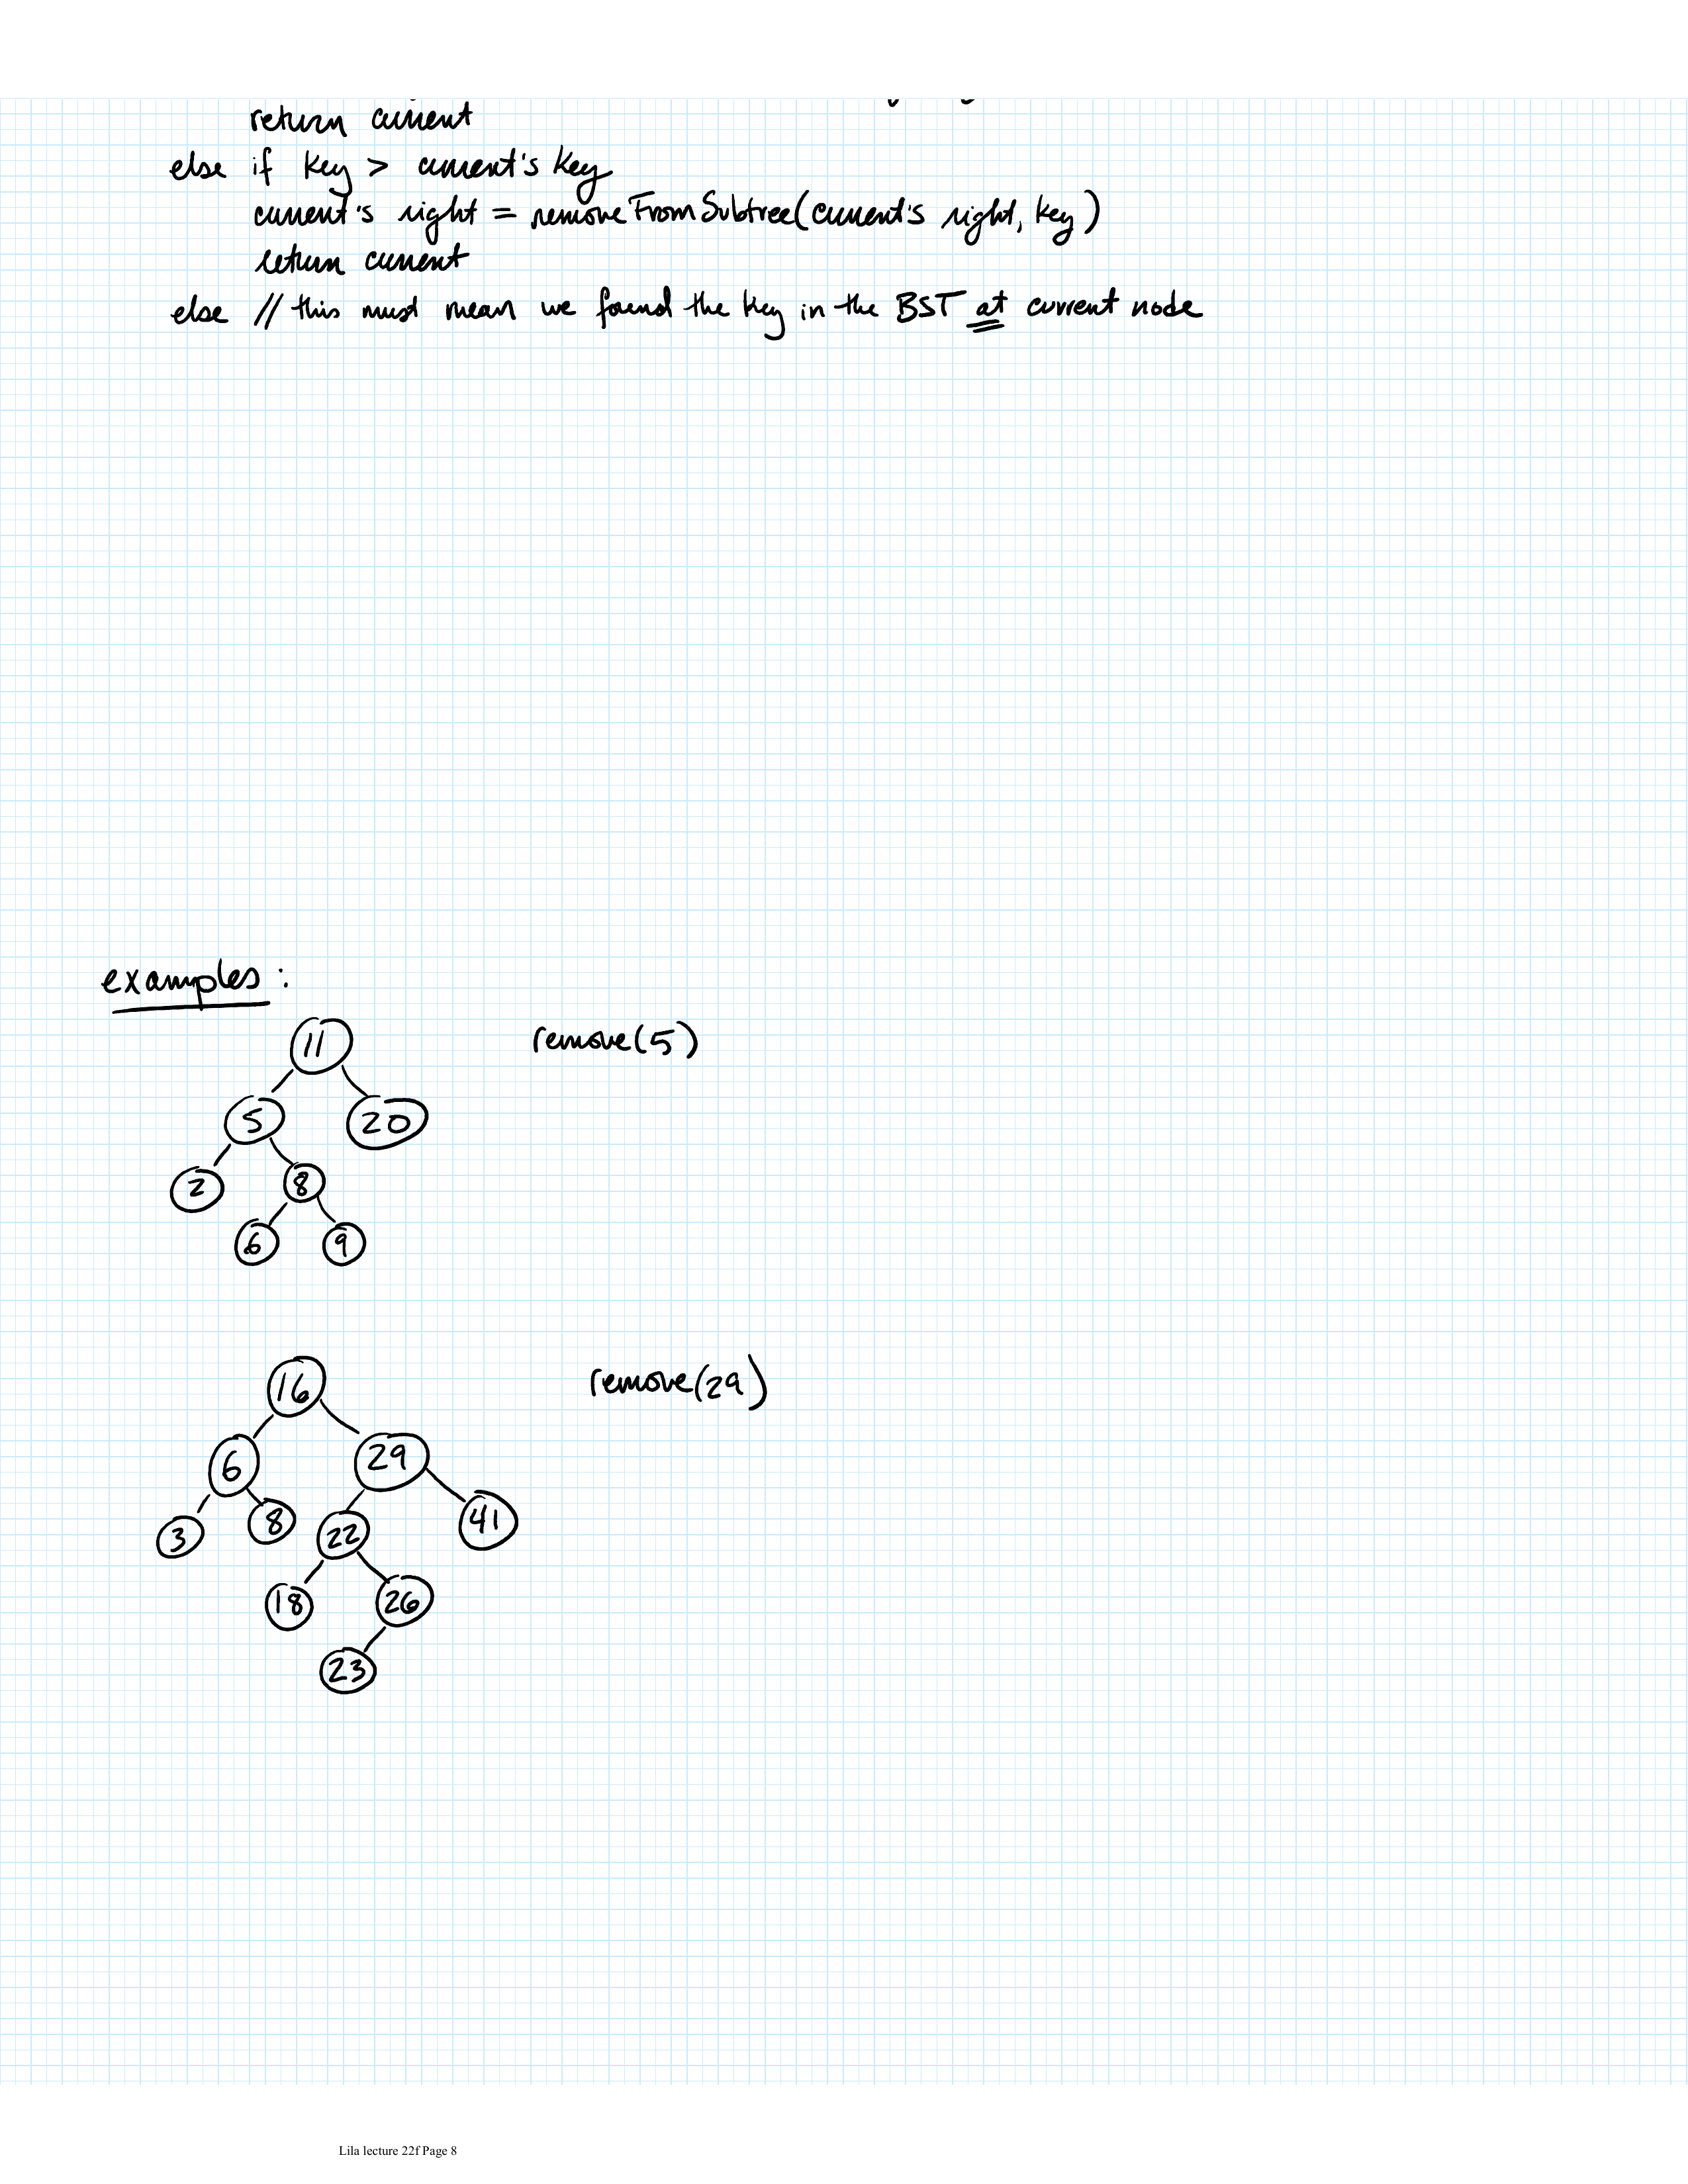 return current
else if key > current's key
current's right = removeFromSubtree(current's right, key)
return current
else // this must mean we found the key in the BST at current node
examples:
remove(5)
11
5 20
2 8
6 9
remove(29)
16
6 29
3 8 22 41
18 26
23
Lila lecture 22f Page 8